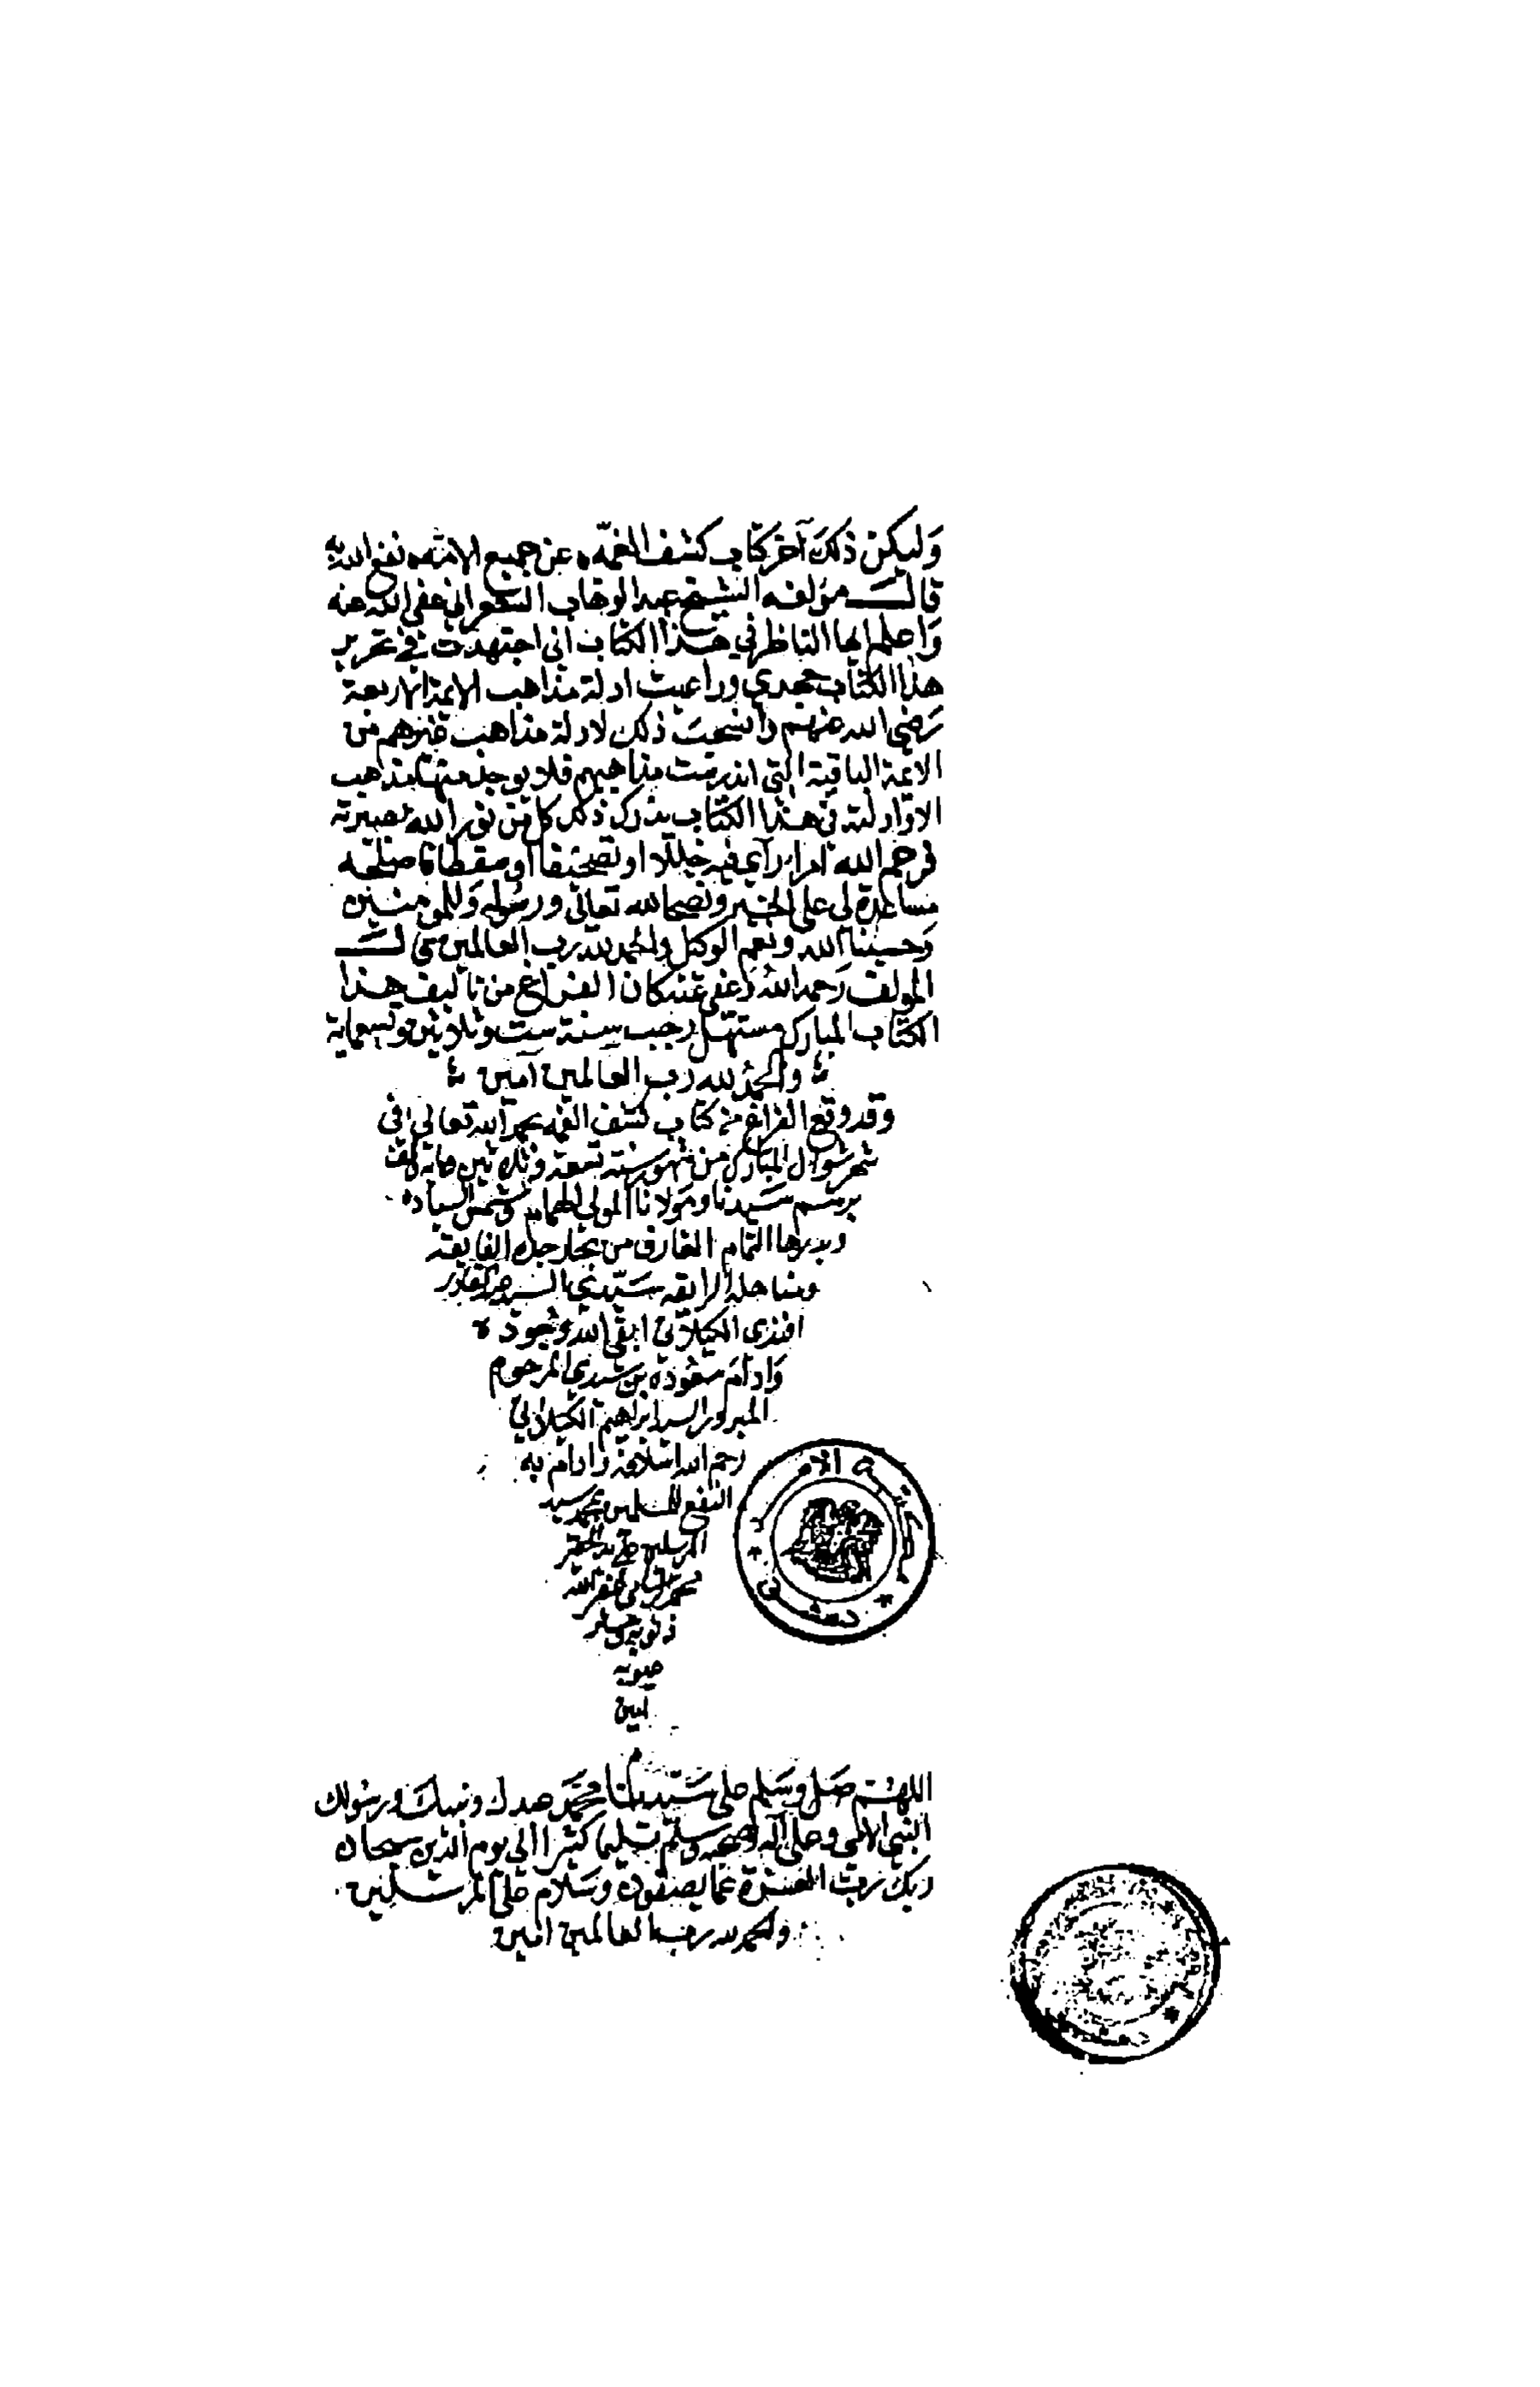 وليكن ذلك آخر كتاب كشف الغمه عن جميع الامه نفع الله به
قال مؤلفه الشيخ عبد الوهاب الشعراني عفى الله عنه
واعلم ايها الناظر في هذا الكتاب اني اجتهدت في تحرير
هذا الكتاب جهدي وراعيت ادلة مذاهب الائمة الاربعة
رضي الله عنهم ذلك لادلة مذاهب غيرهم من
الائمة الباقية التي اندرست مذاهبهم فلا يوجد مذهب
الا وادلته في هذا الكتاب يدرك ذلك كل من نور الله بصيرته
فرحم الله امرا رآى فيه خللا او تصحيفا او سقطا فاصلحه
مساعدة لي على الخير ونصحا لله تعالى ورسوله وللمؤمنين
وحسبنا الله ونعم الوكيل والحمد لله رب العالمين قال
المولف رحمه الله وعفى عنه كان الفراغ من تاليف هذا
الكتاب المبارك مستهل رجب سنة ست وثلاثين وتسعماية
والحمد لله رب العالمين آمين
وقد وقع الفراغ من كتاب كشف الغمه بحمد الله تعالى في
شهر شوال المبارك من شهور سنة تسعة وثلاثين ماية والف
برسم سيدنا ومولانا المولى الهمام وشمس الساده
وبدرها التمام الغارف من بحار جده الفايقه
سيدي السيد عبد القادر
افندي الكيلاني ابقى الله وجوده
وادام سعوده بن سيدي المرحوم
المبرور السيد ابراهيم الكيلاني
رحم الله اسلافه وادام به
النفع للمسلمين بمحمد سيد
المرسلين على يد الحقير
محمد غفر الله
ذنوبه وستر
عيوبه
امين
اللهم صل وسلم على سيدنا محمد عبدك ونبيك ورسولك
النبي الامي وعلى آله وصحبه وسلم تسليما كثيرا الى يوم الدين سبحان
ربك رب العزة عما يصفون وسلام على المرسلين
والحمد لله رب العالمين امين
دمشق